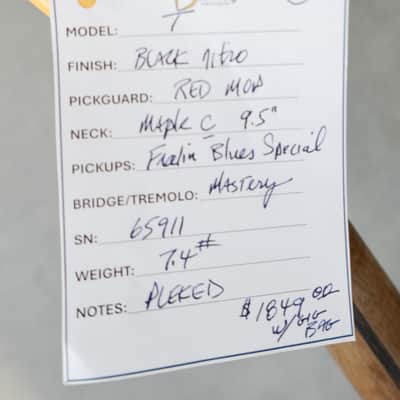 MODEL: T
FINISH: BLACK NITRO
PICKGUARD: RED MOP
NECK: MAPLE C 9.5"
PICKUPS: Fralin Blues Special
BRIDGE/TREMOLO: MASTERY
SN: 65911
WEIGHT: 7.4#
NOTES: PLEKED
$1849.00
w/ GIG
BAG